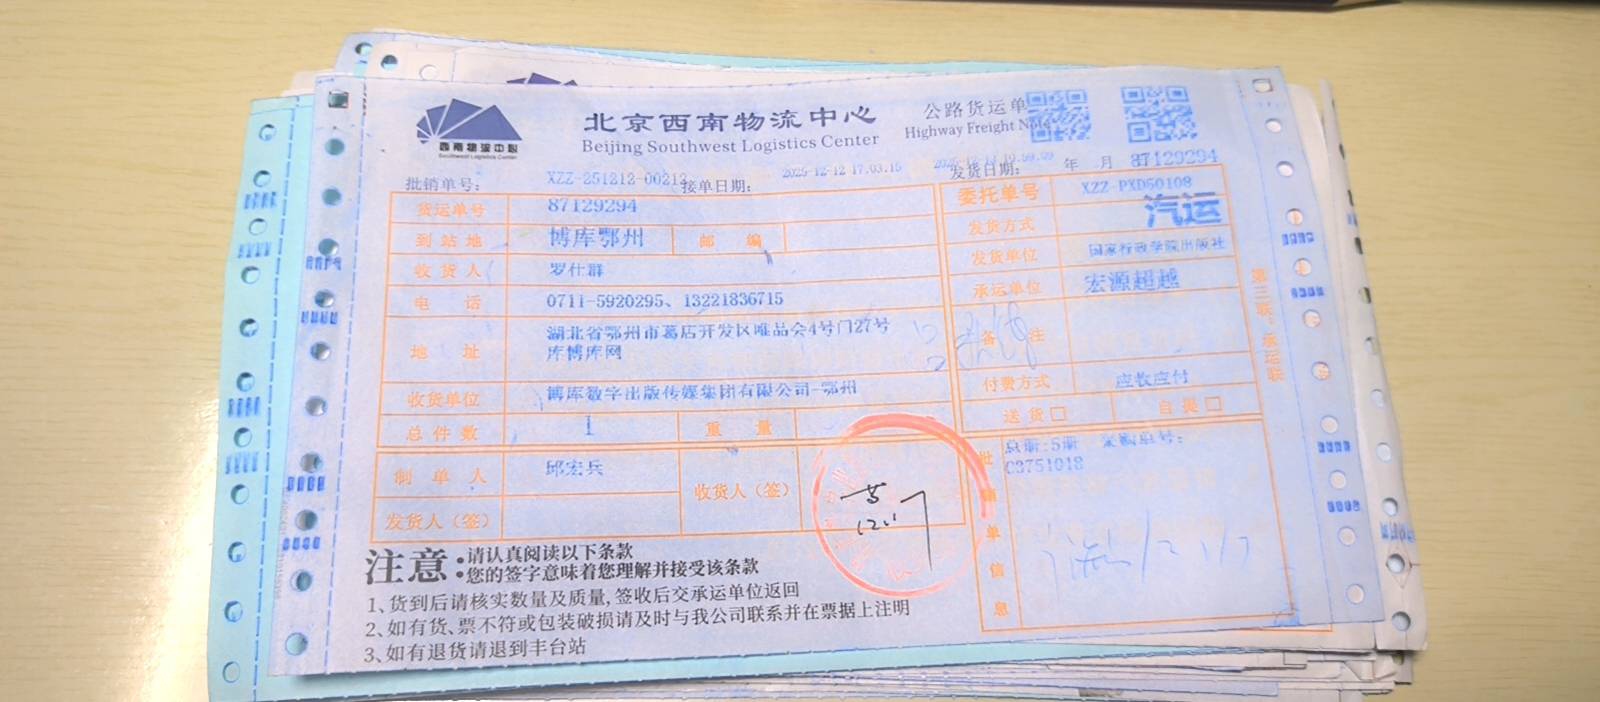 西南物流中心
Southwest Logistics Center
北京西南物流中心
Beijing Southwest Logistics Center
公路货运单
Highway Freight Note
批销单号: XZZ-251212-00213 接单日期: 2025-12-12 17.03.15 发货日期: 年 月 87129294
货运单号 87129294
到站地 博库鄂州 邮编
收货人 罗仕群
电话 0711-5920295、13221836715
地址 湖北省鄂州市葛店开发区唯品会4号门27号
库博库网
收货单位 博库数字出版传媒集团有限公司-鄂州
总件数 1 重量
制单人 邱宏兵 收货人（签）
发货人（签）
委托单号 XZZ-PXD50108
发货方式 汽运
发货单位 国家行政学院出版社
承运单位 宏源超越
备注
付费方式 应收应付
送货□ 自提□
批销单信息 总册:5册 采购单号:
C3751018
第三联：承运联
注意:请认真阅读以下条款
您的签字意味着您理解并接受该条款
1、货到后请核实数量及质量,签收后交承运单位返回
2、如有货、票不符或包装破损请及时与我公司联系并在票据上注明
3、如有退货请退到丰台站